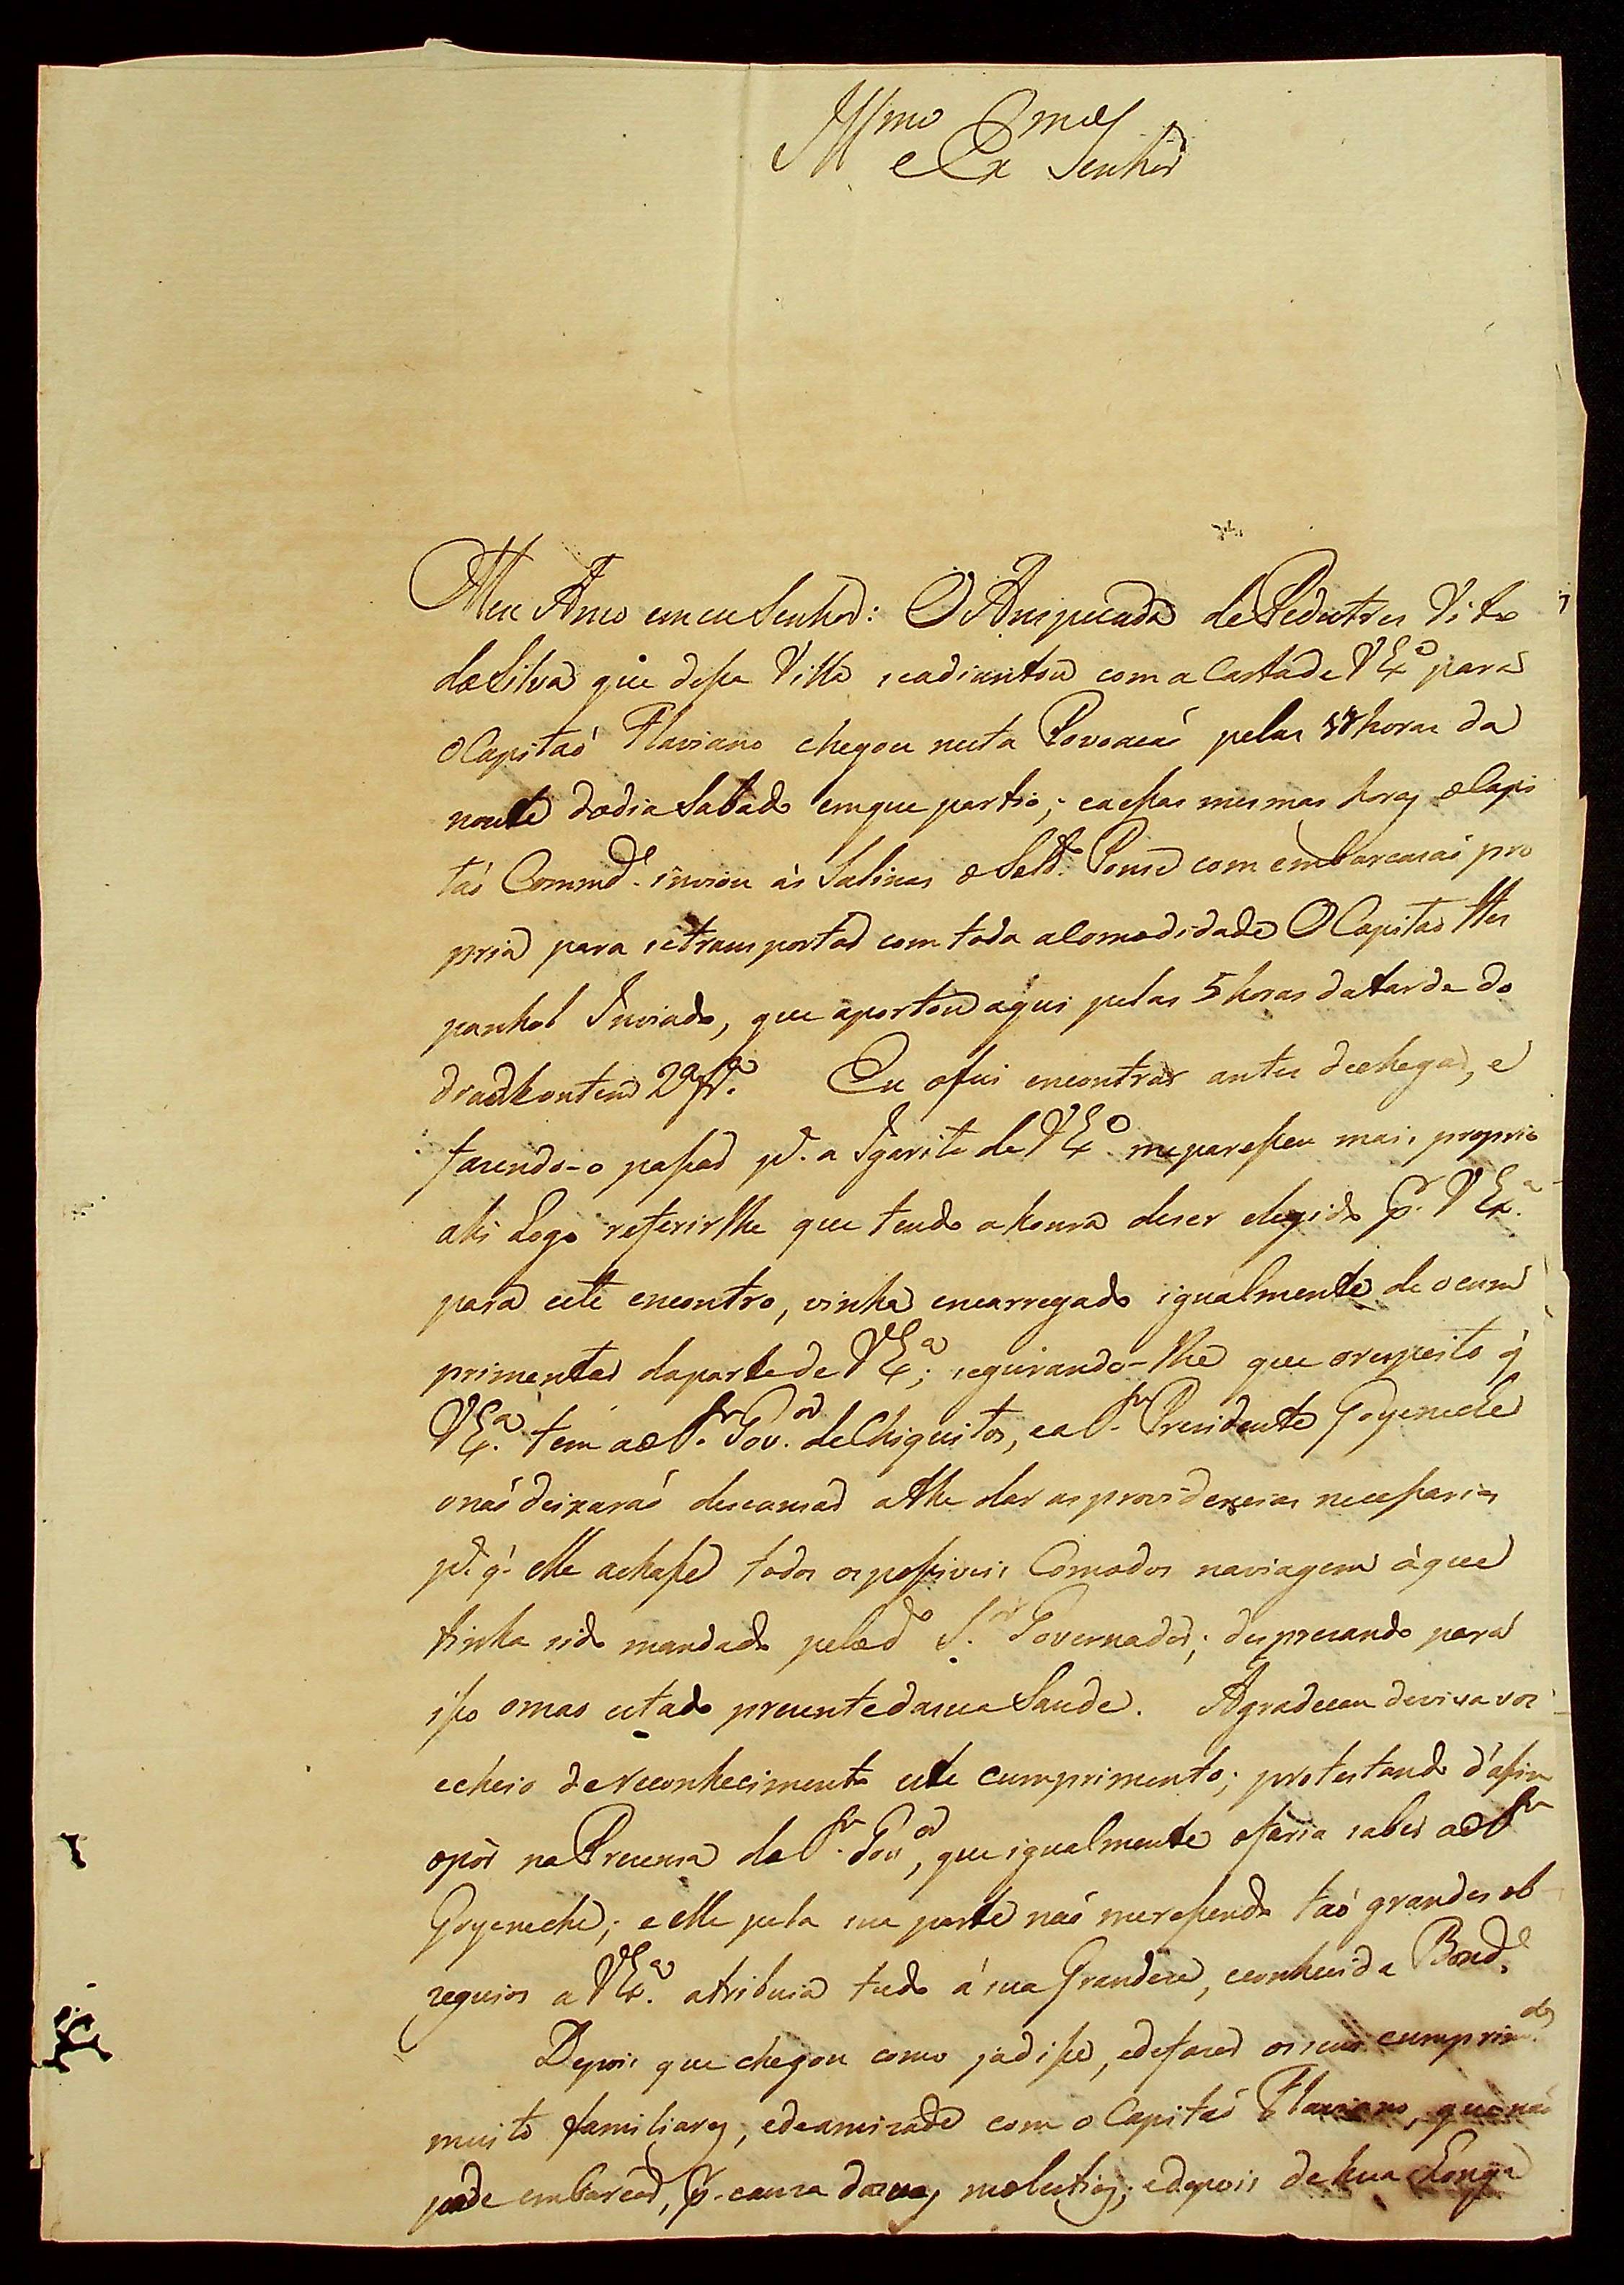 Illmo e Exmo Senhor
Meu Amo e meu Senhor: O Anspecada de Pedestres Vito
da Silva que dessa Villa se adiantou com a Carta de VExa para
o Capitaó Flaviano chegou nesta Povoacaó pelas horas da
noute do dia Sabado em que partio; e a essas mesmas horas o Capi
taó Commde. inviou ás Salinas o Soldo. Ponse com embarcasaó pro
pria para se transportar com toda a Comodidade O Capitaó Hes
panhol Inviado, que aportou aqui pelas 5 horas da tarde do
dia d'hontem 2a fra. Eu o fui encontrar antes de chegar, e
fazendo-o passar pa. a Igarite de VExa me paresseu mais proprio
ahi Logo referirlhe que tendo a honra de ser elegido por VExa.
para este encontro, vinha encarregado igualmente de o cum
primentar da parte de VExa; segurando-lhe que o respeito q̃
VExa. tem ao Sr. Govor. de Chiquitos, e a Sr. Presidente Goyeneche
o naó deixaraó descansar athe dar as providencias necessarias
pa. q̃. elle achasse todos os possiveis Comodos na viagem á que
tinha sido mandado pelo do Sr. Governador; despresando para
isso o mao estado presente da sua Saude. Agradeceu de viva vos
e cheio de reconhecimento este cumprimento; protestando d'assim
o pôr na Presensa do Sr. Gouor, que igualmente o faria saber ao Sr
Goyeneche; e elle pela sua parte naó meressendo taó grandes ob
zequios a VExa. atribuia tudo á sua Grandeza, e conhecida Bonde.
Depois que chegou como já disse, e de fazer os seus cumprimdos
muito familiares, e de amizade com o Capitaó Flaviano, que naó
pode embarcar, por causa das suas molestias; e depois de hua Longa